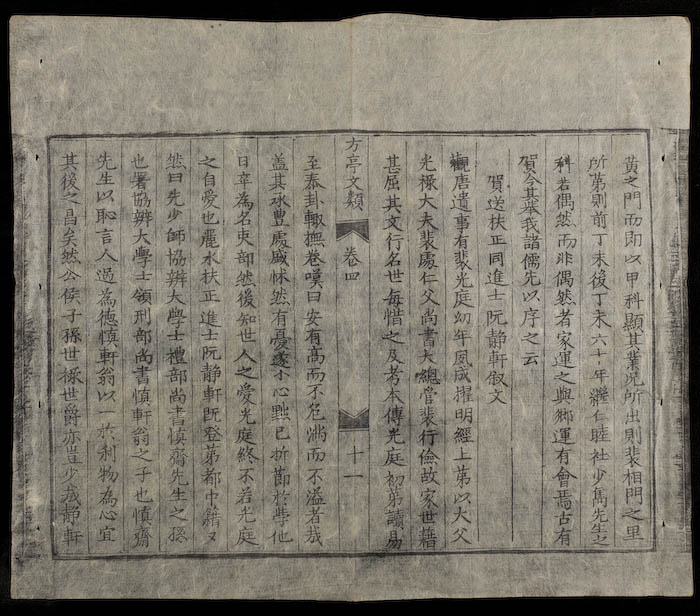 黃之門而即以甲科顯其業況所出則裴相門之里
所第則前丁未後丁未六十年繼仁睦社少雋先生之
科若偶然而非偶然者家運之與鄉運有會焉古有
賀今其舉我諸儒先以序之云
賀送扶正同進士阮靜軒敘文
觀唐遺事有裴光庭幼年夙成擢明經上第以大父
光祿大夫裴處仁父尚書大總管裴行儉故家世藉
甚屈其文行名世每惜之及考本傳光庭初第讀易
方亭文類 卷四 十一
至泰卦輒撫卷嘆曰安有高而不危滿而不溢者哉
蓋其求豐處盛怵然有憂遂小心黜已折節於學他
日卒為名吏部然後知世人之愛光庭終不若光庭
之自愛也麗水扶正進士阮靜軒既登第都中藉又
然曰先少師協辦大學士禮部尚書慎齋先生之孫
也署協辦大學士領刑部尚書慎軒翁之子也慎齋
先生以恥言人過為德慎軒翁以一於利物為心宜
其後之昌矣然公侯子孫世祿世爵亦豈少哉靜軒